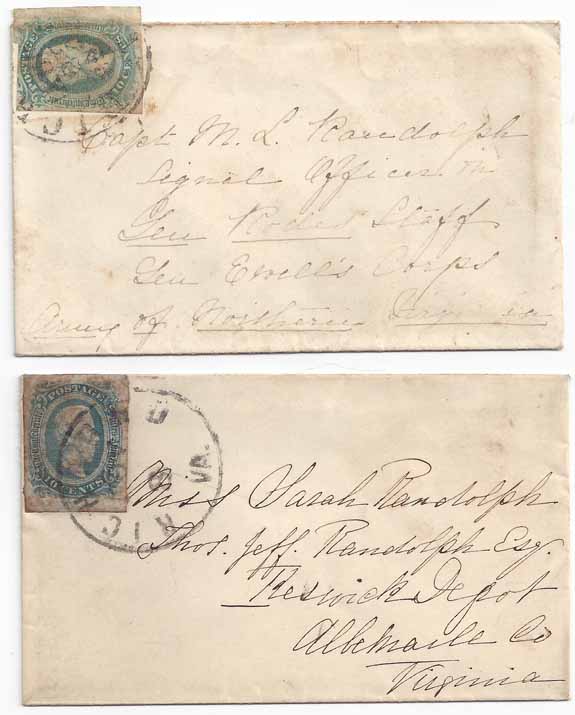 POSTAGE
Capt M. L. Randolph
Signal Officer on
Gen Rodes Staff
Gen Ewell's Corps
Army of Northern Virginia
POSTAGE
TEN CENTS
RICH D VA.
Miss Sarah Randolph
Thos. Jeff. Randolph Esq.
Keswick Depot
Albemarle Co
Virginia